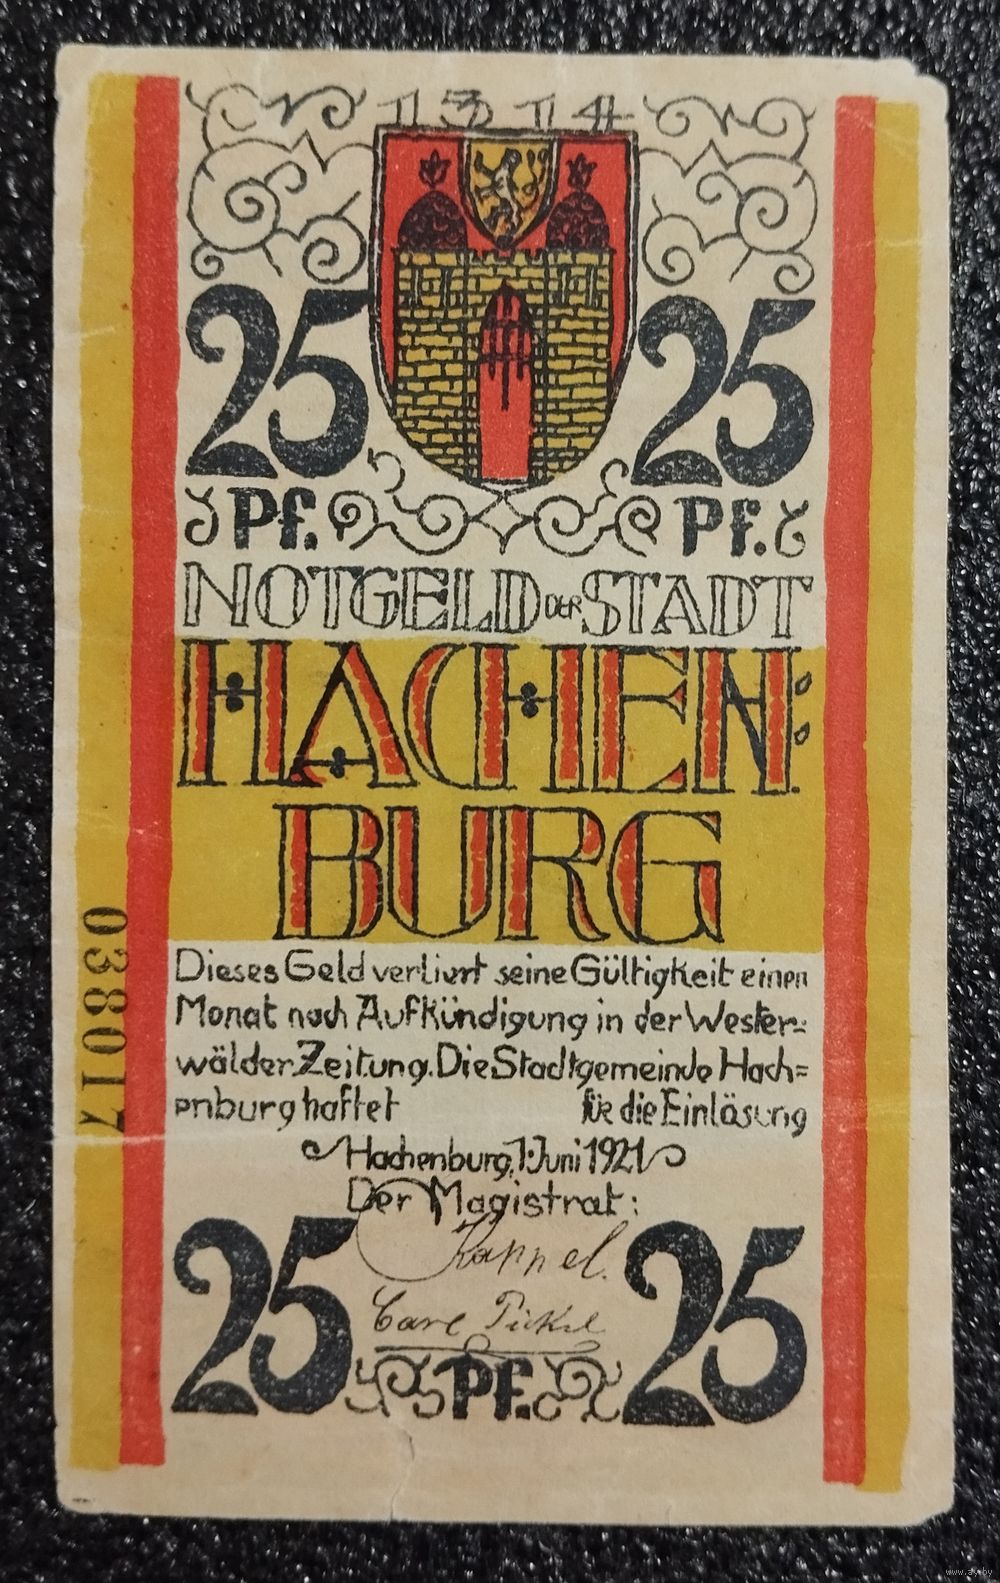 1314
25 25
Pf. Pf.
NOTGELD DER STADT
HACHEN:
BURG
Dieses Geld verliert seine Gültigkeit einen
Monat nach Aufkündigung in der Wester=
wälder Zeitung. Die Stadtgemeinde Hach=
enburg haftet für die Einlösung
Hachenburg, 1. Juni 1921
Der Magistrat:
Kappel.
Carl Pickel
25 25
Pf.
038017
www.ay.by